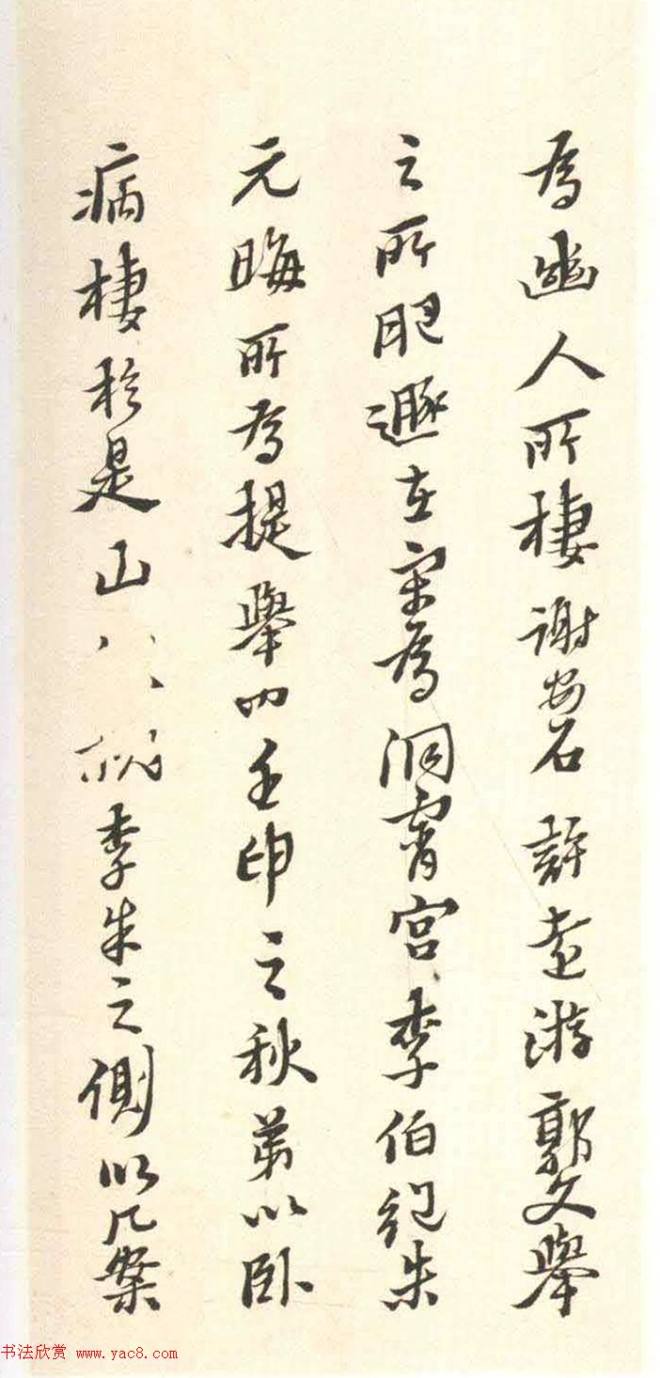 為幽人所棲謝安石許遠游郭文舉
之所肥遯在宋為洞霄宮李伯紀朱
元晦所為提舉也壬申之秋弟以卧
病棲於是山李朱之側以几案
书法欣赏 www.yac8.com